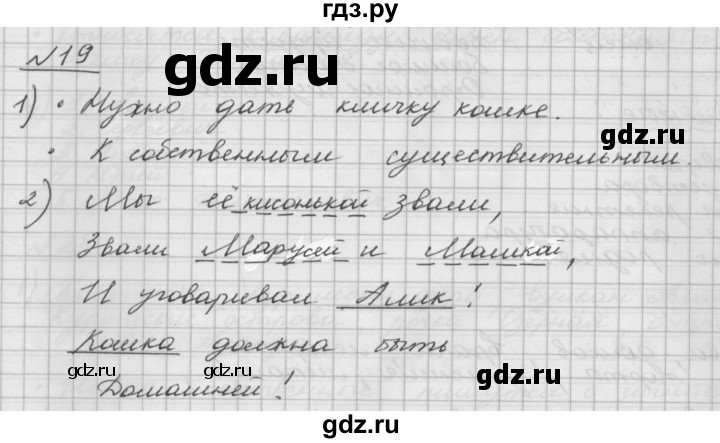 гдз.ру
№19
gdz.ru
1) • Нужно дать кличку кошке.
gdz.ru
• К собственным существительным.
2) Мы её кисонькой звали,
Звали Марусей и Машкой,
И уговаревал Алик!
Кошка должна быть
gdz.ru gdz.ru
Домашней!
gdz.ru